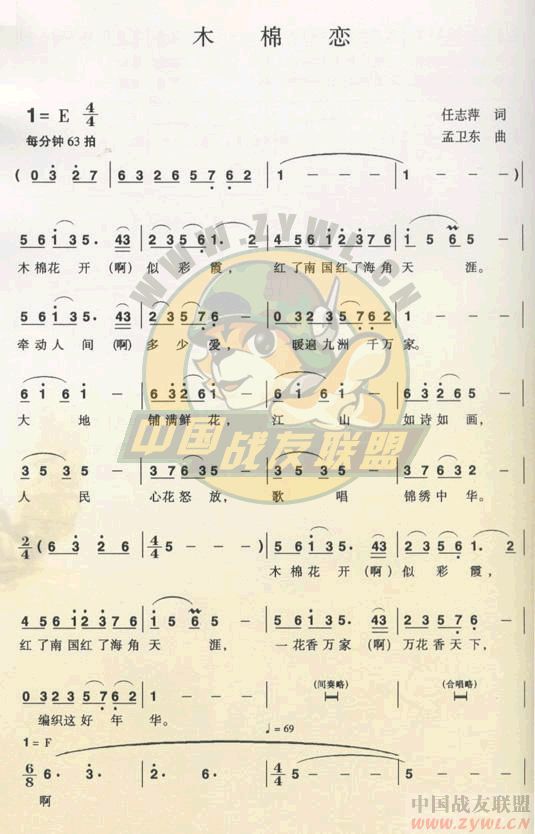 木 棉 恋
1= E 4/4
任志萍 词
每分钟 63 拍
孟卫东 曲
( 0 3 2 7 | 6 3 2 6 5 7 6 2 | 1 - - - | 1 - - - )
5 6 1 3 5. 4 3 | 2 3 5 6 1. 2 | 4 5 6 1 2 3 7 6 | 1 5 6 - -
木棉花 开 (啊) 似 彩 霞, 红了南国红了海角 天 涯。
5 6 1 3 5. 4 3 | 2 3 5 7 6 - | 0 3 2 3 5 7 6 2 | 1 - - -
牵动人 间 (啊) 多 少 爱, 暖遍九洲 千万 家。
6 1 6 1 | 6 3 2 6 1 - | 2 1 2 1 | 2 3 7 6 3 -
大 地 铺满鲜 花, 江 山 如诗如 画,
3 5 3 5 | 3 7 6 3 5 - | 3 5 3 5 | 3 7 6 3 2 -
人 民 心花怒 放, 歌 唱 锦绣中 华。
2/4 ( 6 3 2 6 | 4/4 5 - - - ) | 5 6 1 3 5. 4 3 | 2 3 5 6 1. 2
木棉花 开 (啊) 似 彩 霞,
4 5 6 1 2 3 7 6 | 1 5 6 - - | 5 6 1 3 5. 4 3 | 2 3 5 7 6 -
红了南国红了海角 天 涯, 一花香万 家 (啊) 万花香天 下,
0 3 2 3 5 7 6 2 | 1 - - - | (间奏略) | (合唱略)
编织这好 年 华。
♩=69
1= F
6/8 6. 3. | 2. 6. | 4/4 5 - - - | 5 - - -
啊
WWW.ZYWL.CN
中国战友联盟
中国战友联盟
www.ZYWL.CN